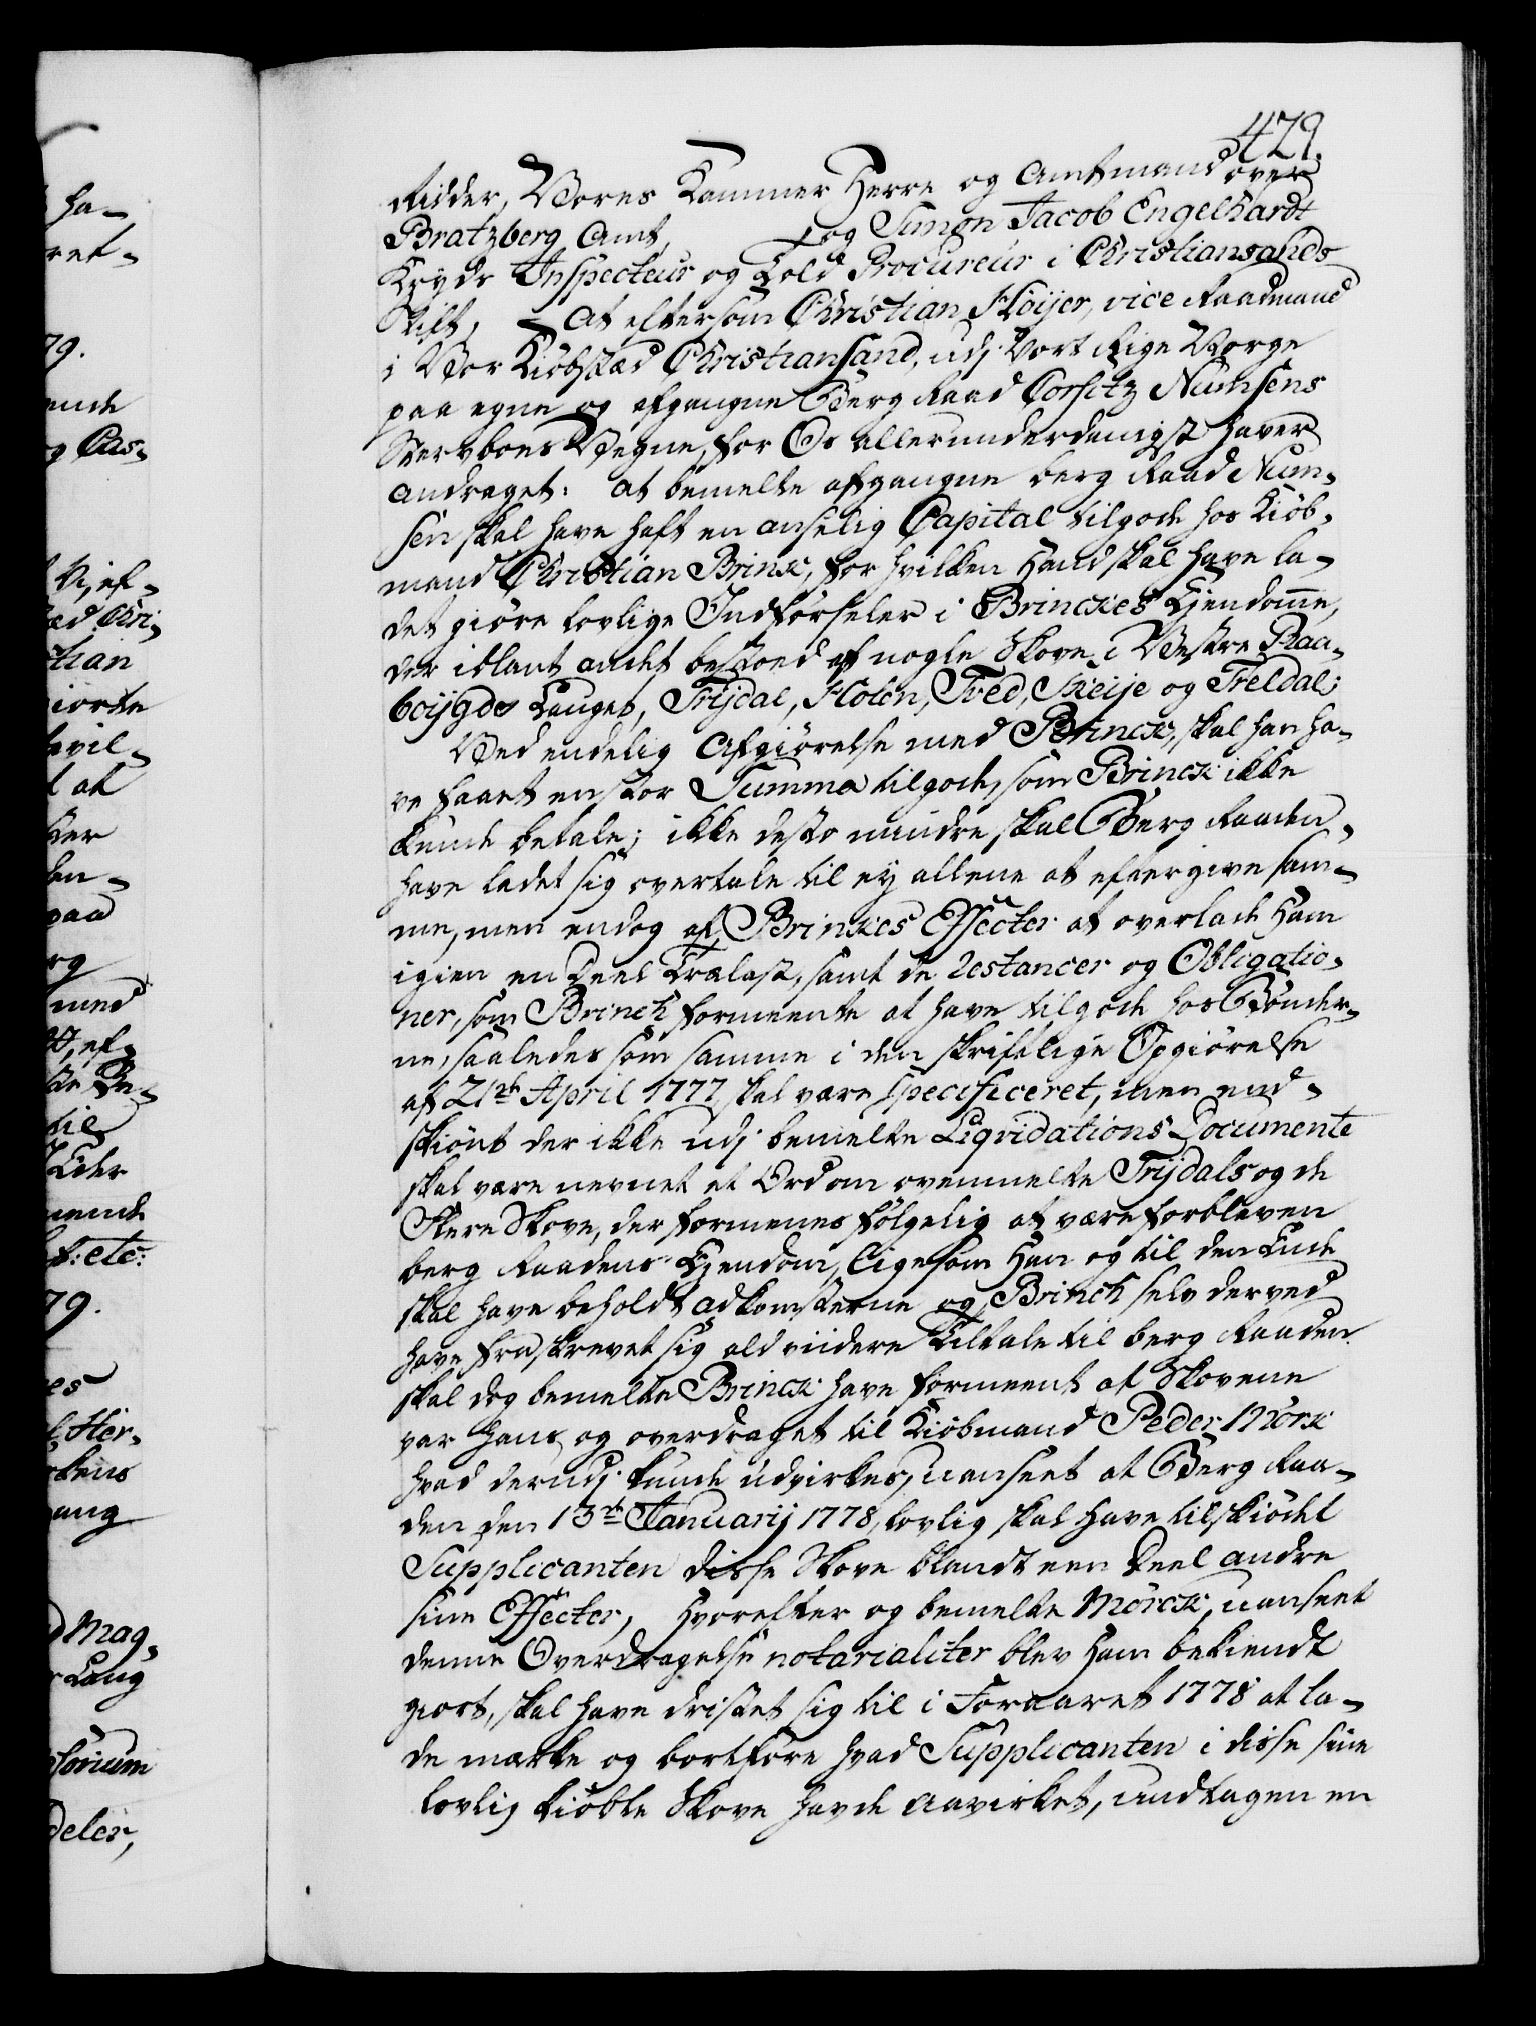 429.
Ridder, Vores Kammer Herre og Amtmand over
Bratzberg Amt, og Simon Jacob Engelhardt
Kryds Inspecteur og Told Procureur i Christiansands
Stift, At eftersom Christian Höijer, vice Raadmand
i Vor Kiöbsted Christiansand, udj Vort Rige Norge
paa egne og afgangne Berg Raad Corfitz Numsens
Sterboes Vegne, for Os allerunderdanigst haver
andraget: at bemelte afgangne berg Raad Num-
sen skal have haft en anselig Capital tilgode hos Kiöb-
mand Christian Brinck, for hvilken Hand skal have la-
det giöre lovlige Indförseler i Brinckes Ejendomme,
der iblant andet bestoed af nogle Skove i Vestre Raa-
boijgde Lauget, Trijdal, Holen, Tved, Skeije og Treldal;
Ved endelig Afgiörelse med Brinck, skal han ha-
ve faaet en stor Summa tilgode, som Brinck ikke
kunde betale; ikke desto mindre skal Berg Raaden
have ladet sig overtale til ey allene at eftergive sam-
me, men endog af Brinckes Effecter at overlade Ham
igien en Deel Trælast, samt de Restancer og Obligatio-
ner, som Brinck formeente at have tilgode hos Bönder-
ne, saaledes som samme i den skriftlige Opgiörelse
af 21de April 1777, skal være Specificeret, men end-
skiönt der ikke udj bemelte Liqvidations Documente
skal være nevnet et Ord om ovenmelte Trijdals og de
flere Skove, der formenes fölgelig at være forbleven
berg Raadens Ejendom, ligesom Han og til den Ende
skal have beholdt adkomsterne og Brinck selv derved
have fraskrevet sig ald viidere Tiltale til berg Raaden
skal dog bemelte Brinck have formeent at Skovene
var Hans, og overdraget til Kiöbmand Peder Mörck
hvad derudj kunde udvirkes, uanseet at Berg Raa-
den den 13de Januarij 1778, lovlig skal have tilskiödet
Supplicanten disse Skove blandt een Deel andre
sine Effecter, Hvorefter og bemelte Mörck, uanseet
denne Overdragelse notarialiter blev Ham bekiendt
giort, skal have dristet sig til i Foraaret 1778 at la-
de mærke og bortföre hvad Supplicanten i disse sine
lovlig kiöbte Skove havde aavirket, undtagen en